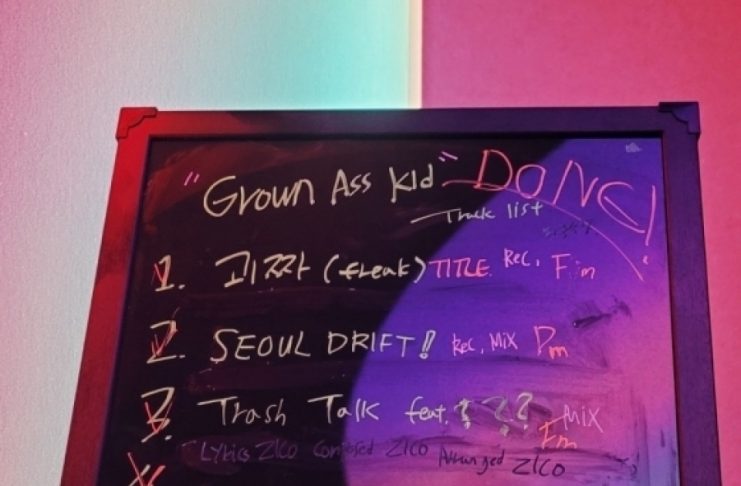 "Grown Ass Kid" DONE!
Track list
1. 괴짜 (freak) TITLE Rec, Fm
2. SEOUL DRIFT! Rec, Mix Dm
3. Trash Talk feat. ??? Mix Fm
Lyrics ZICO Composed ZICO Arranged ZICO